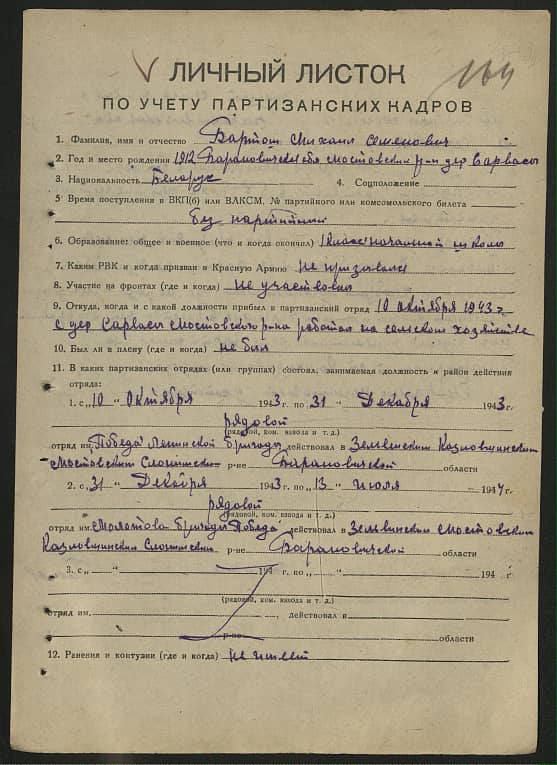 V ЛИЧНЫЙ ЛИСТОК 164
ПО УЧЕТУ ПАРТИЗАНСКИХ КАДРОВ
1. Фамилия, имя и отчество Бартош Михаил Семенович
2. Год и место рождения 1912 Барановическая обл Мостовский р-н дер Сарвасы
3. Национальность Беларус 4. Соцположение
5 Время поступления в ВКП(б) или ВЛКСМ, № партийного или комсомольского билета
без партийный
6. Образование: общее и военное (что и когда окончил) начальной школы
7. Каким РВК и когда призван в Красную Армию не призывался
8. Участие на фронтах (где и когда) не участвовал
9. Откуда, когда и с какой должности прибыл в партизанский отряд 10 октября 1943 г
с дер Сарвасы Мостовского р-на работал на сельском хозяйстве
10. Был ли в плену (где и когда) не был
11. В каких партизанских отрядах (или группах) состоял, занимаемая должность и район действия
отряда:
1. с „10 " Октября 1943 г. по „31 " Декабря 1943 г.
рядовой
(рядовой, ком. взвода и т. д.)
отряд им. Победа Ленинской бригады действовал в Зельвенским Козловщинским
Мостовским Слонимском р-не Барановичской области
2. с „31 " Декабря 1943 г. по „13 " июля 1944 г.
рядовой
(рядовой, ком. взвода и т. д.)
отряд им. Молотова бригады Победа действовал в Зельвинским Мостовским
Казловщинским Слонимским р-не Барановичской области
3. с „ " 194 г. по „ " 194 г
(рядовой, ком. взвода и т. д.)
отряд им. , действовал в
р-не области
12. Ранения и контузии (где и когда) не имеет